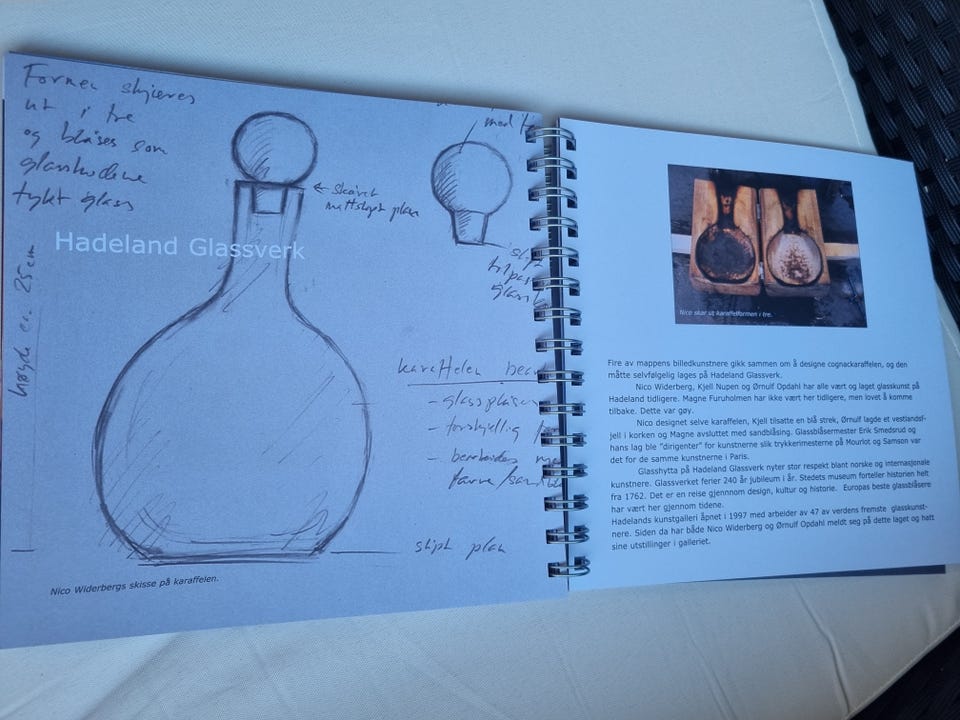 Formen skjæres
ut i tre
og blåses som
glasshodene
tykt glass
høyde ca. 25cm
Hadeland Glassverk
← skåret
mattslipt plan
med
slipt
tilpas
glass
karaffelen bear
- glassblåser
- forskjellig
- bearbeides m
farve/sandbl
slipt plan
Nico Widerbergs skisse på karaffelen.
Nico skar ut karaffelformen i tre.
Fire av mappens billedkunstnere gikk sammen om å designe cognackaraffelen, og den
måtte selvfølgelig lages på Hadeland Glassverk.
Nico Widerberg, Kjell Nupen og Ørnulf Opdahl har alle vært og laget glasskunst på
Hadeland tidligere. Magne Furuholmen har ikke vært her tidligere, men lovet å komme
tilbake. Dette var gøy.
Nico designet selve karaffelen, Kjell tilsatte en blå strek, Ørnulf lagde et vestlandsf-
jell i korken og Magne avsluttet med sandblåsing. Glassblåsermester Erik Smedsrud og
hans lag ble "dirigenter" for kunstnerne slik trykkerimesterne på Mourlot og Samson var
det for de samme kunstnerne i Paris.
Glasshytta på Hadeland Glassverk nyter stor respekt blant norske og internasjonale
kunstnere. Glassverket ferier 240 år jubileum i år. Stedets museum forteller historien helt
fra 1762. Det er en reise gjennnom design, kultur og historie. Europas beste glassblåsere
har vært her gjennom tidene.
Hadelands kunstgalleri åpnet i 1997 med arbeider av 47 av verdens fremste glasskunst-
nere. Siden da har både Nico Widerberg og Ørnulf Opdahl meldt seg på dette laget og hatt
sine utstillinger i galleriet.